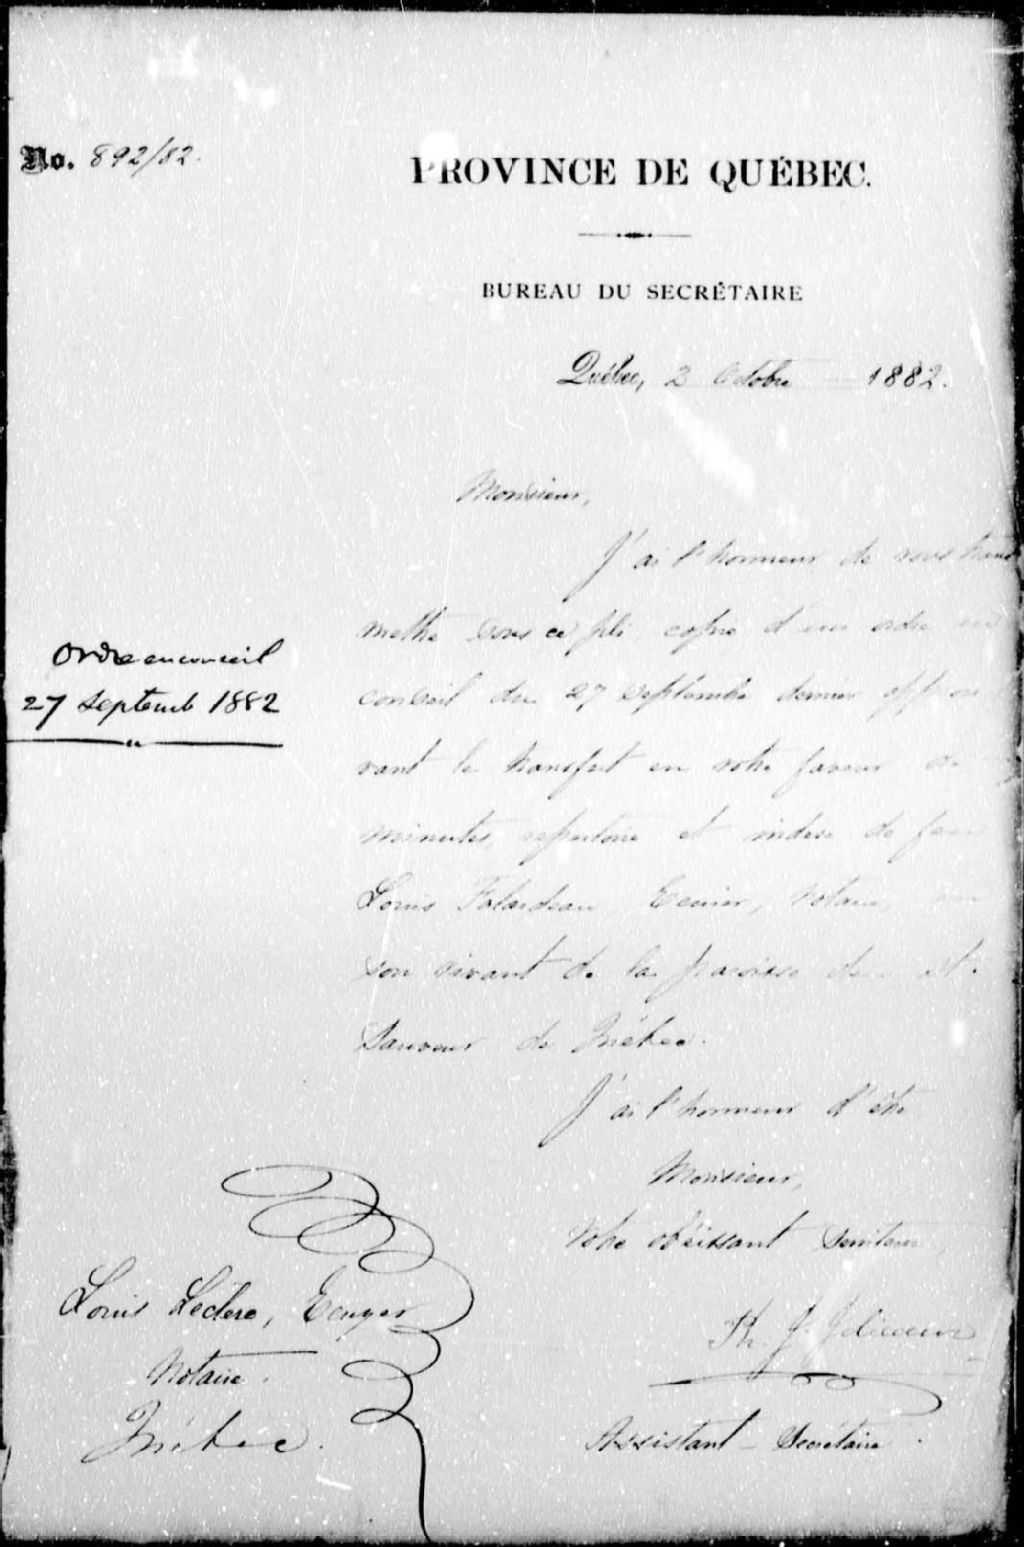 No. 892/82.
PROVINCE DE QUÉBEC.
BUREAU DU SECRÉTAIRE
Québec, 2 Octobre 1882.
Monsieur,
J'ai l'honneur de vous trans
mettre sous ce pli copie d'un ordre en
Ordre en conseil
27 Septemb 1882
conseil du 27 Septembre dernier approu
vant le transfert en votre faveur de
minutes, répertoire et index de feu
Louis Falardeau, Ecuier, Notaire, en
son vivant de la paroisse de St.
Sauveur de Québec.
J'ai l'honneur d'être
Monsieur,
Votre obéissant Serviteur,
Ph. J. Jolicoeur
Assistant-Secrétaire.
Louis Leclerc, Ecuyer
Notaire.
Québec.